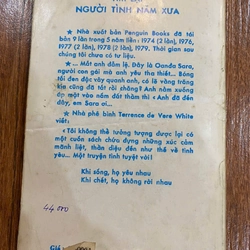 NGƯỜI TÌNH NĂM XƯA
★ Nhà xuất bản Penguin Books đã tái
bản 9 lần trong 5 năm liền : 1974 (2 lần), 1976,
1977 (2 lần), 1978 (2 lần), 1979. Thời gian sau
chúng tôi chưa có tư liệu.
★ ... Mắt anh dõi lệ. Đây là Oanda Sara,
người con gái mà anh yêu tha thiết... Bóng
tối đen đặc vây quanh anh, có lẽ vầng trăng
kia cũng đã tắt rồi chăng ? Anh nằm xuống
áp mặt vào nấm đất thầm thì : « Anh đã đến
đây, em Sara ơi...
★ Nhà phê bình Terrence de Vere White
viết:
« Tôi không thể tưởng tượng được lại có
một cuốn sách chứa đựng những xúc cảm
mãnh liệt, thần diệu đến như thế về tình
yêu... Một truyện tình tuyệt vời !
Khi sống, họ yêu nhau
Khi chết, họ không rời nhau
44.000
Giá :